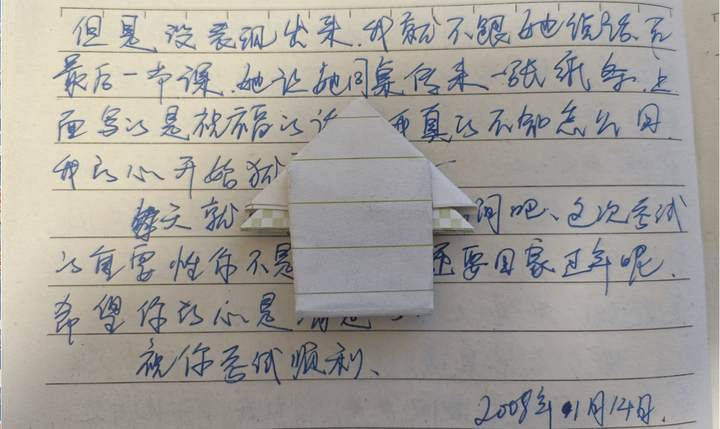 但是没表现出来.我就不跟她说话了
最后一节课.她让她同桌传来一张纸条.上
面写的是祝福的话 我真的不知怎么回.
我的心开始狐
天就 阴吧、这次考试
的重要性你不是 还要回家过年呢.
希望你的心是
祝你考试顺利、
2008年 1月14日.